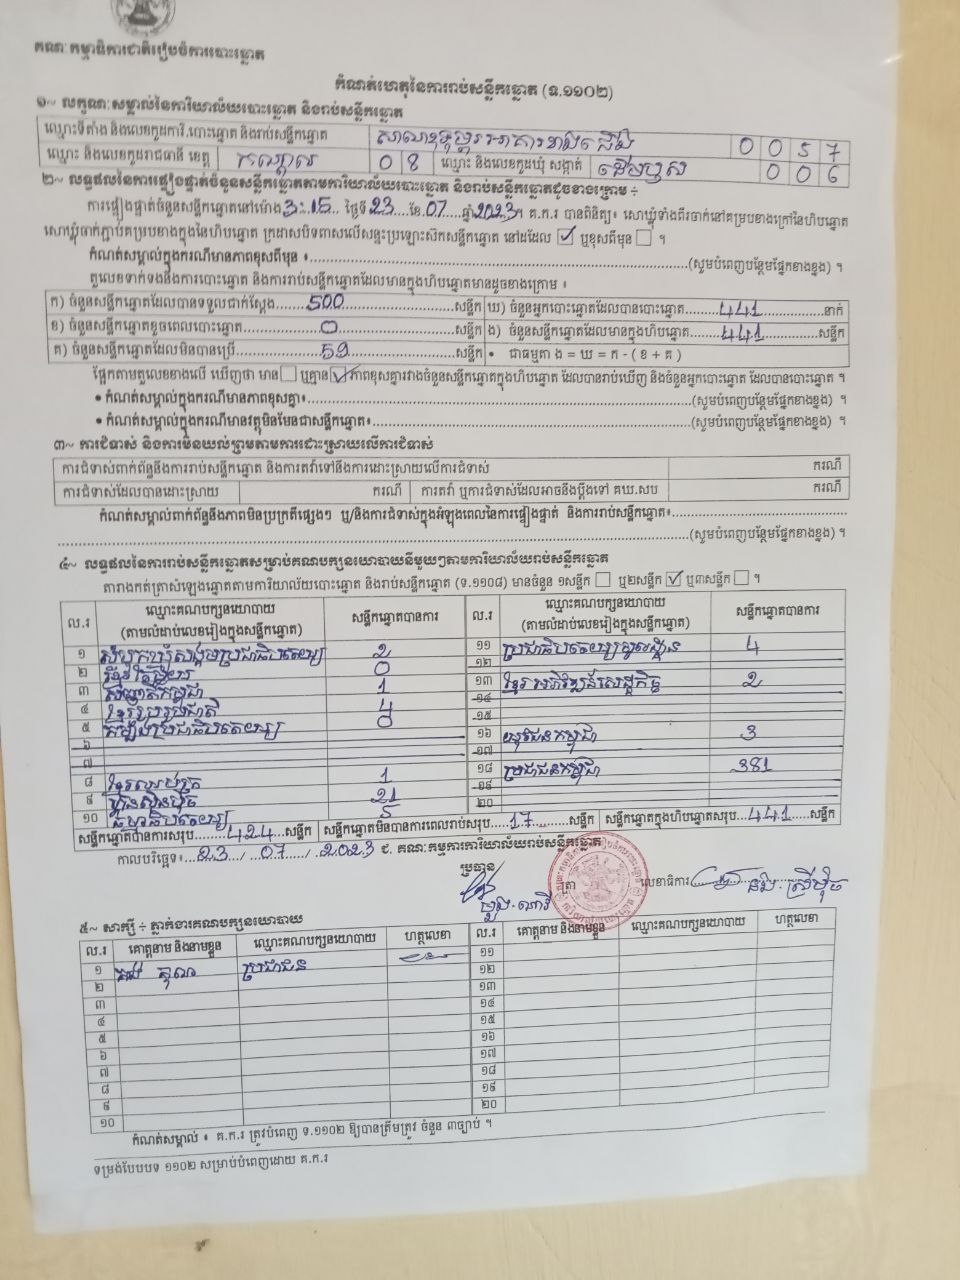 គណៈកម្មាធិការជាតិរៀបចំការបោះឆ្នោត
កំណត់ហេតុនៃការរាប់សន្លឹកឆ្នោត (ទ.១១០២)
១~ លក្ខណៈសម្គាល់នៃការិយាល័យបោះឆ្នោត និងរាប់សន្លឹកឆ្នោត
ឈ្មោះទីតាំង និងលេខកូដការិ.បោះឆ្នោត និងរាប់សន្លឹកឆ្នោត 0 0 5 7
ឈ្មោះ និងលេខកូដរាជធានី ខេត្ត កណ្តាល 0 8 ឈ្មោះ និងលេខកូដឃុំ សង្កាត់ 0 0 6
២~ លទ្ធផលនៃការផ្ទៀងផ្ទាត់ចំនួនសន្លឹកឆ្នោតតាមការិយាល័យបោះឆ្នោត និងរាប់សន្លឹកឆ្នោតដូចខាងក្រោម ÷
ការផ្ទៀងផ្ទាត់ចំនួនសន្លឹកឆ្នោតនៅម៉ោង 3:15 ថ្ងៃទី 23 ខែ 07 ឆ្នាំ 2023 ។ គ.ក.រ បានពិនិត្យ៖ សោឃ្មុំទាំងពីរចាក់នៅគម្របខាងក្រៅនៃហិបឆ្នោត
សោឃ្មុំចាក់ភ្ជាប់គម្របខាងក្នុងនៃហិបឆ្នោត ក្រដាសបិទពាសលើសន្ទះប្រឡោះស៊កសន្លឹកឆ្នោត នៅដដែល ☑ ឬខុសពីមុន ☐ ។
កំណត់សម្គាល់ក្នុងករណីមានភាពខុសពីមុន ៖ (សូមបំពេញបន្ថែមផ្នែកខាងខ្នង) ។
តួលេខទាក់ទងនឹងការបោះឆ្នោត និងការរាប់សន្លឹកឆ្នោតដែលមានក្នុងហិបឆ្នោតមានដូចខាងក្រោម ៖
ក) ចំនួនសន្លឹកឆ្នោតដែលបានទទួលជាក់ស្តែង 500 សន្លឹក ឃ) ចំនួនអ្នកបោះឆ្នោតដែលបានបោះឆ្នោត 441 នាក់
ខ) ចំនួនសន្លឹកឆ្នោតខូចពេលបោះឆ្នោត 0 សន្លឹក ង) ចំនួនសន្លឹកឆ្នោតដែលមានក្នុងហិបឆ្នោត 441 សន្លឹក
គ) ចំនួនសន្លឹកឆ្នោតដែលមិនបានប្រើ 59 សន្លឹក • ជាធម្មតា ង = ឃ = ក - ( ខ + គ )
ផ្អែកតាមតួលេខខាងលើ ឃើញថា មាន ☐ ឬគ្មាន ☑ ភាពខុសគ្នារវាងចំនួនសន្លឹកឆ្នោតក្នុងហិបឆ្នោត ដែលបានរាប់ឃើញ និងចំនួនអ្នកបោះឆ្នោត ដែលបានបោះឆ្នោត ។
• កំណត់សម្គាល់ក្នុងករណីមានភាពខុសគ្នា៖ (សូមបំពេញបន្ថែមផ្នែកខាងខ្នង) ។
• កំណត់សម្គាល់ក្នុងករណីមានវត្ថុមិនមែនជាសន្លឹកឆ្នោត៖ (សូមបំពេញបន្ថែមផ្នែកខាងខ្នង) ។
៣~ ការជំទាស់ និងការមិនយល់ព្រមតាមការដោះស្រាយលើការជំទាស់
ការជំទាស់ពាក់ព័ន្ធនឹងការរាប់សន្លឹកឆ្នោត និងការតវ៉ាទៅនឹងការដោះស្រាយលើការជំទាស់ ករណី
ការជំទាស់ដែលបានដោះស្រាយ ករណី ការតវ៉ា ឬការជំទាស់ដែលអាចនឹងប្តឹងទៅ គឃ.សប ករណី
កំណត់សម្គាល់ពាក់ព័ន្ធនឹងភាពមិនប្រក្រតីផ្សេងៗ ឬ/និងការជំទាស់ក្នុងអំឡុងពេលនៃការផ្ទៀងផ្ទាត់ និងការរាប់សន្លឹកឆ្នោត៖
(សូមបំពេញបន្ថែមផ្នែកខាងខ្នង) ។
៤~ លទ្ធផលនៃការរាប់សន្លឹកឆ្នោតសម្រាប់គណបក្សនយោបាយនីមួយៗតាមការិយាល័យរាប់សន្លឹកឆ្នោត
តារាងកត់ត្រាសំឡេងឆ្នោតតាមការិយាល័យបោះឆ្នោត និងរាប់សន្លឹកឆ្នោត (ទ.១១០៨) មានចំនួន ១សន្លឹក ☐ ឬ២សន្លឹក ☑ ឬ៣សន្លឹក ☐ ។
ល.រ ឈ្មោះគណបក្សនយោបាយ (តាមលំដាប់លេខរៀងក្នុងសន្លឹកឆ្នោត) សន្លឹកឆ្នោតបានការ ល.រ ឈ្មោះគណបក្សនយោបាយ (តាមលំដាប់លេខរៀងក្នុងសន្លឹកឆ្នោត) សន្លឹកឆ្នោតបានការ
១ សំបុកឃ្មុំសង្គមប្រជាធិបតេយ្យ 2 ១១ ប្រជាធិបតេយ្យមូលដ្ឋាន 4
២ 0 ១២
៣ 1 ១៣ ខ្មែរអភិវឌ្ឍន៍សេដ្ឋកិច្ច 2
៤ ខ្មែររួបរួមជាតិ 4 ១៤
៥ កម្លាំងប្រជាធិបតេយ្យ 0 ១៥
៦ ១៦ យុវជនកម្ពុជា 3
៧ ១៧
៨ 1 ១៨ ប្រជាជនកម្ពុជា 381
៩ ហ្វ៊ុនស៊ិនប៉ិច 21 ១៩
១០ ធម្មាធិបតេយ្យ 5 ២០
សន្លឹកឆ្នោតបានការសរុប 424 សន្លឹក សន្លឹកឆ្នោតមិនបានការពេលរាប់សរុប 17 សន្លឹក សន្លឹកឆ្នោតក្នុងហិបឆ្នោតសរុប 441 សន្លឹក
កាលបរិច្ឆេទ៖ 23 / 07 / 2023 ជ. គណៈកម្មការការិយាល័យរាប់សន្លឹកឆ្នោត
ប្រធាន ត្រា លេខាធិការ
៥~ សាក្សី ÷ ភ្នាក់ងារគណបក្សនយោបាយ
ល.រ គោត្តនាម និងនាមខ្លួន ឈ្មោះគណបក្សនយោបាយ ហត្ថលេខា ល.រ គោត្តនាម និងនាមខ្លួន ឈ្មោះគណបក្សនយោបាយ ហត្ថលេខា
១ ប្រជាជន ១១
២ ១២
៣ ១៣
៤ ១៤
៥ ១៥
៦ ១៦
៧ ១៧
៨ ១៨
៩ ១៩
១០ ២០
កំណត់សម្គាល់ ៖ គ.ក.រ ត្រូវបំពេញ ទ.១១០២ ឱ្យបានត្រឹមត្រូវ ចំនួន ៣ច្បាប់ ។
ទម្រង់បែបបទ ១១០២ សម្រាប់បំពេញដោយ គ.ក.រ